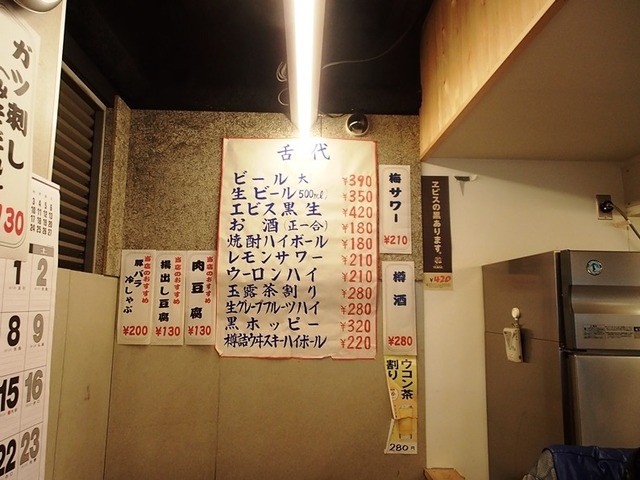 ガツ刺し
30
舌代
ビール 大 ¥390
生ビール 500ml ¥350
エビス黒生 ¥420
お酒(正一合) ¥180
焼酎ハイボール ¥180
レモンサワー ¥210
ウーロンハイ ¥210
玉露茶割り ¥280
生グレープフルーツハイ ¥280
黒ホッピー ¥320
樽詰ウヰスキーハイボール ¥220
梅サワー
¥210
樽酒
¥280
ヱビスの黒あります。
¥420
ウコン茶
割り
280円
当店のおすすめ
豚バラ
冷しゃぶ
¥200
当店のおすすめ
揚出し豆腐
¥130
当店のおすすめ
肉豆腐
¥130
1 2
8 9
15 16
22 23